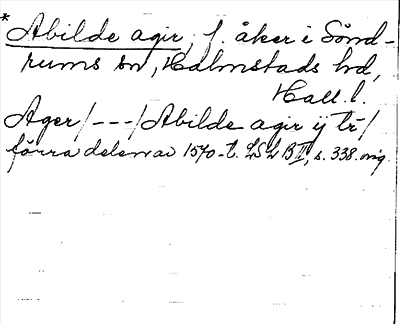 * Abilde agir, f. åker i Sönd-
rums sn, Halmstads hd,
Hall. l.
Ager/---/Abilde agir ij tr/
förra delen av 1570-t. LSLB II, s. 338. orig.